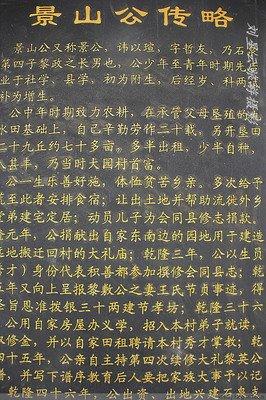 景山公传略
景山公又称景公，讳以瑄，字哲友，乃石
第四子黎政之长男也，公少年至青年时期先
业于社学、县学，初为附生，后经岁、科两
补为增生。
公中年时期致力农耕，在承管父母垦殖的
水田基础上，自己辛勤劳作二十载，另开垦田
二十九丘约七十多亩。多半出租，少半自种，
入甚丰，乃当时大园村首富。
公一生乐善好施，体恤贫苦乡亲。多次给于
荒至此者安排食宿；让出土地并帮助流徙外乡
堂弟建宅定居；动员儿子为会同县修志捐款。
元年，公捐献出自家东南边的园地用于建造
近地搬迁回村的大礼庙；乾隆三年，公以生员
才）身份代表积善都参加撰修会同县志；乾
五年又向上呈报黎敷公之妻王氏节贞事迹，得
圣旨恩准拨银三十两建节孝坊；乾隆三十六
公用自家房屋办义学，招入本村弟子就读，
取修金，并以自家田租聘请本村秀才掌教；乾
四十五年，公亲自主持第四次续修大礼黎英公
谱，并写下谱序教育后人要把家族大事子以记
乾隆四十六年，公出资、出地兴建石泉支